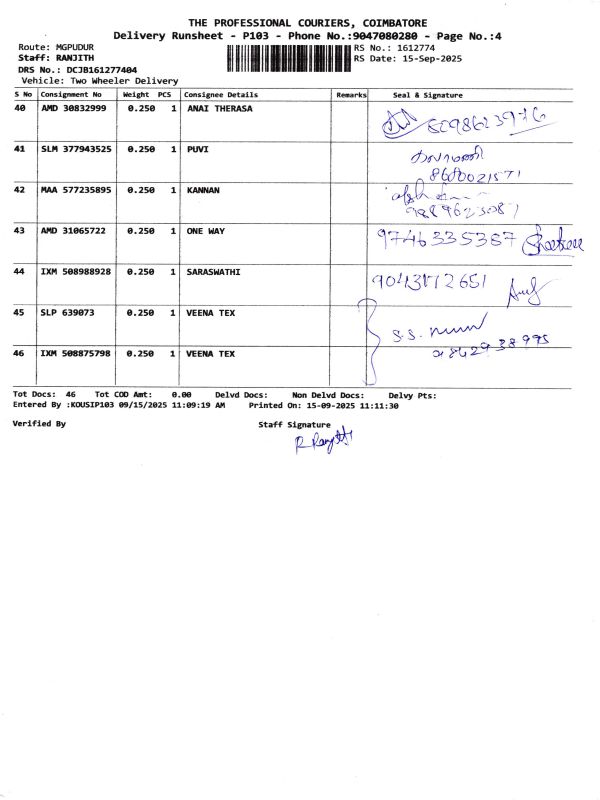 THE PROFESSIONAL COURIERS, COIMBATORE
Delivery Runsheet - P103 - Phone No.:9047080280 - Page No.:4
Route: MGPUDUR RS No.: 1612774
Staff: RANJITH RS Date: 15-Sep-2025
DRS No.: DCJB161277404
Vehicle: Two Wheeler Delivery
S No Consignment No Weight PCS Consignee Details Remarks Seal & Signature
40 AMD 30832999 0.250 1 ANAI THERASA
41 SLM 377943525 0.250 1 PUVI
8680021571
42 MAA 577235895 0.250 1 KANNAN
43 AMD 31065722 0.250 1 ONE WAY 9746335367
44 IXM 508988928 0.250 1 SARASWATHI
45 SLP 639073 0.250 1 VEENA TEX
S.S.
46 IXM 508875798 0.250 1 VEENA TEX
Tot Docs: 46 Tot COD Amt: 0.00 Delvd Docs: Non Delvd Docs: Delvy Pts:
Entered By :KOUSIP103 09/15/2025 11:09:19 AM Printed On: 15-09-2025 11:11:30
Verified By Staff Signature